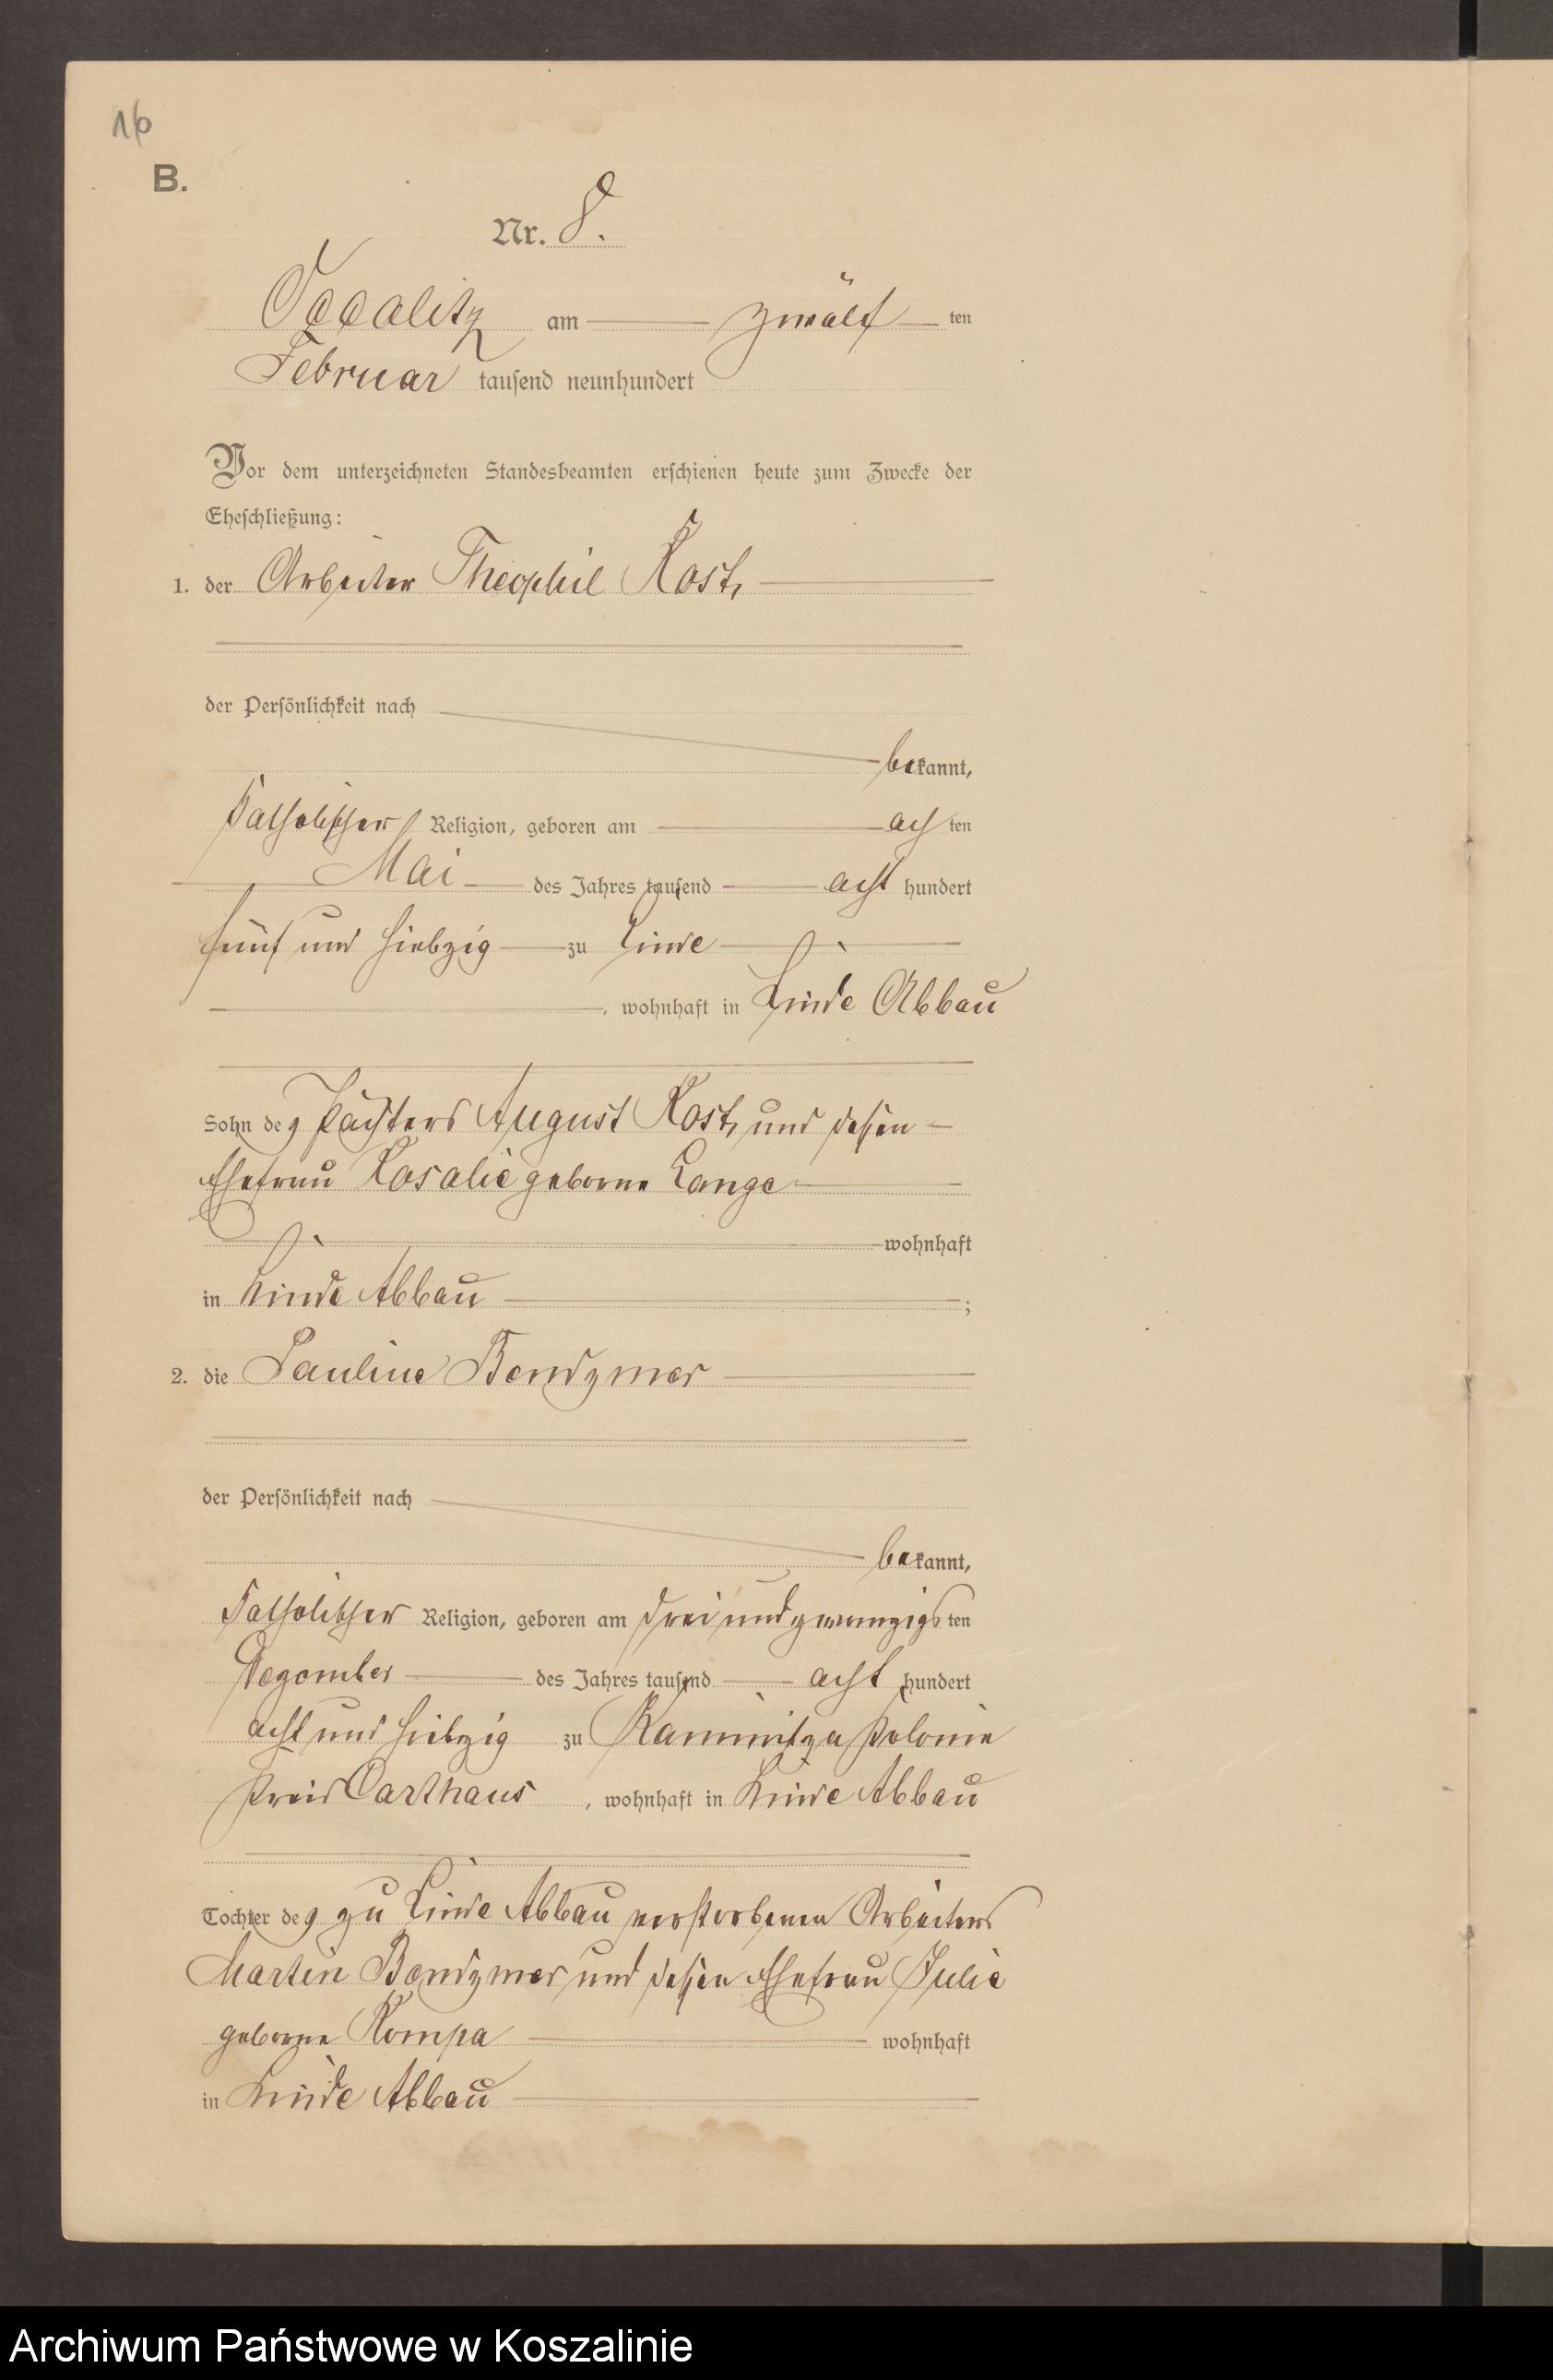 16
B.
Nr. 8.
Occalitz am zwölf ten
Februar tausend neunhundert
Vor dem unterzeichneten Standesbeamten erschienen heute zum Zwecke der
Eheschließung:
1. der Arbeiter Theophil Kost,
der Persönlichkeit nach
bekannt,
katholischer Religion, geboren am ach ten
Mai des Jahres tausend acht hundert
fünf und siebzig zu Linde
, wohnhaft in Linde Abbau
Sohn des Pächters August Kost, und dessen
Ehefrau Rosalie geborne Lange
wohnhaft
in Linde Abbau ;
2. die Pauline Bendzmer
der Persönlichkeit nach
bekannt,
katholischer Religion, geboren am drei und zwanzigs ten
Dezember des Jahres tausend acht hundert
acht und siebzig zu Kaminitza Kolonie
Kreis Carthaus , wohnhaft in Linde Abbau
Tochter des zu Linde Abbau verstorbenen Arbeiters
Martin Bendzmer und dessen Ehefrau Julie
geborne Kompa wohnhaft
in Linde Abbau
Archiwum Państwowe w Koszalinie